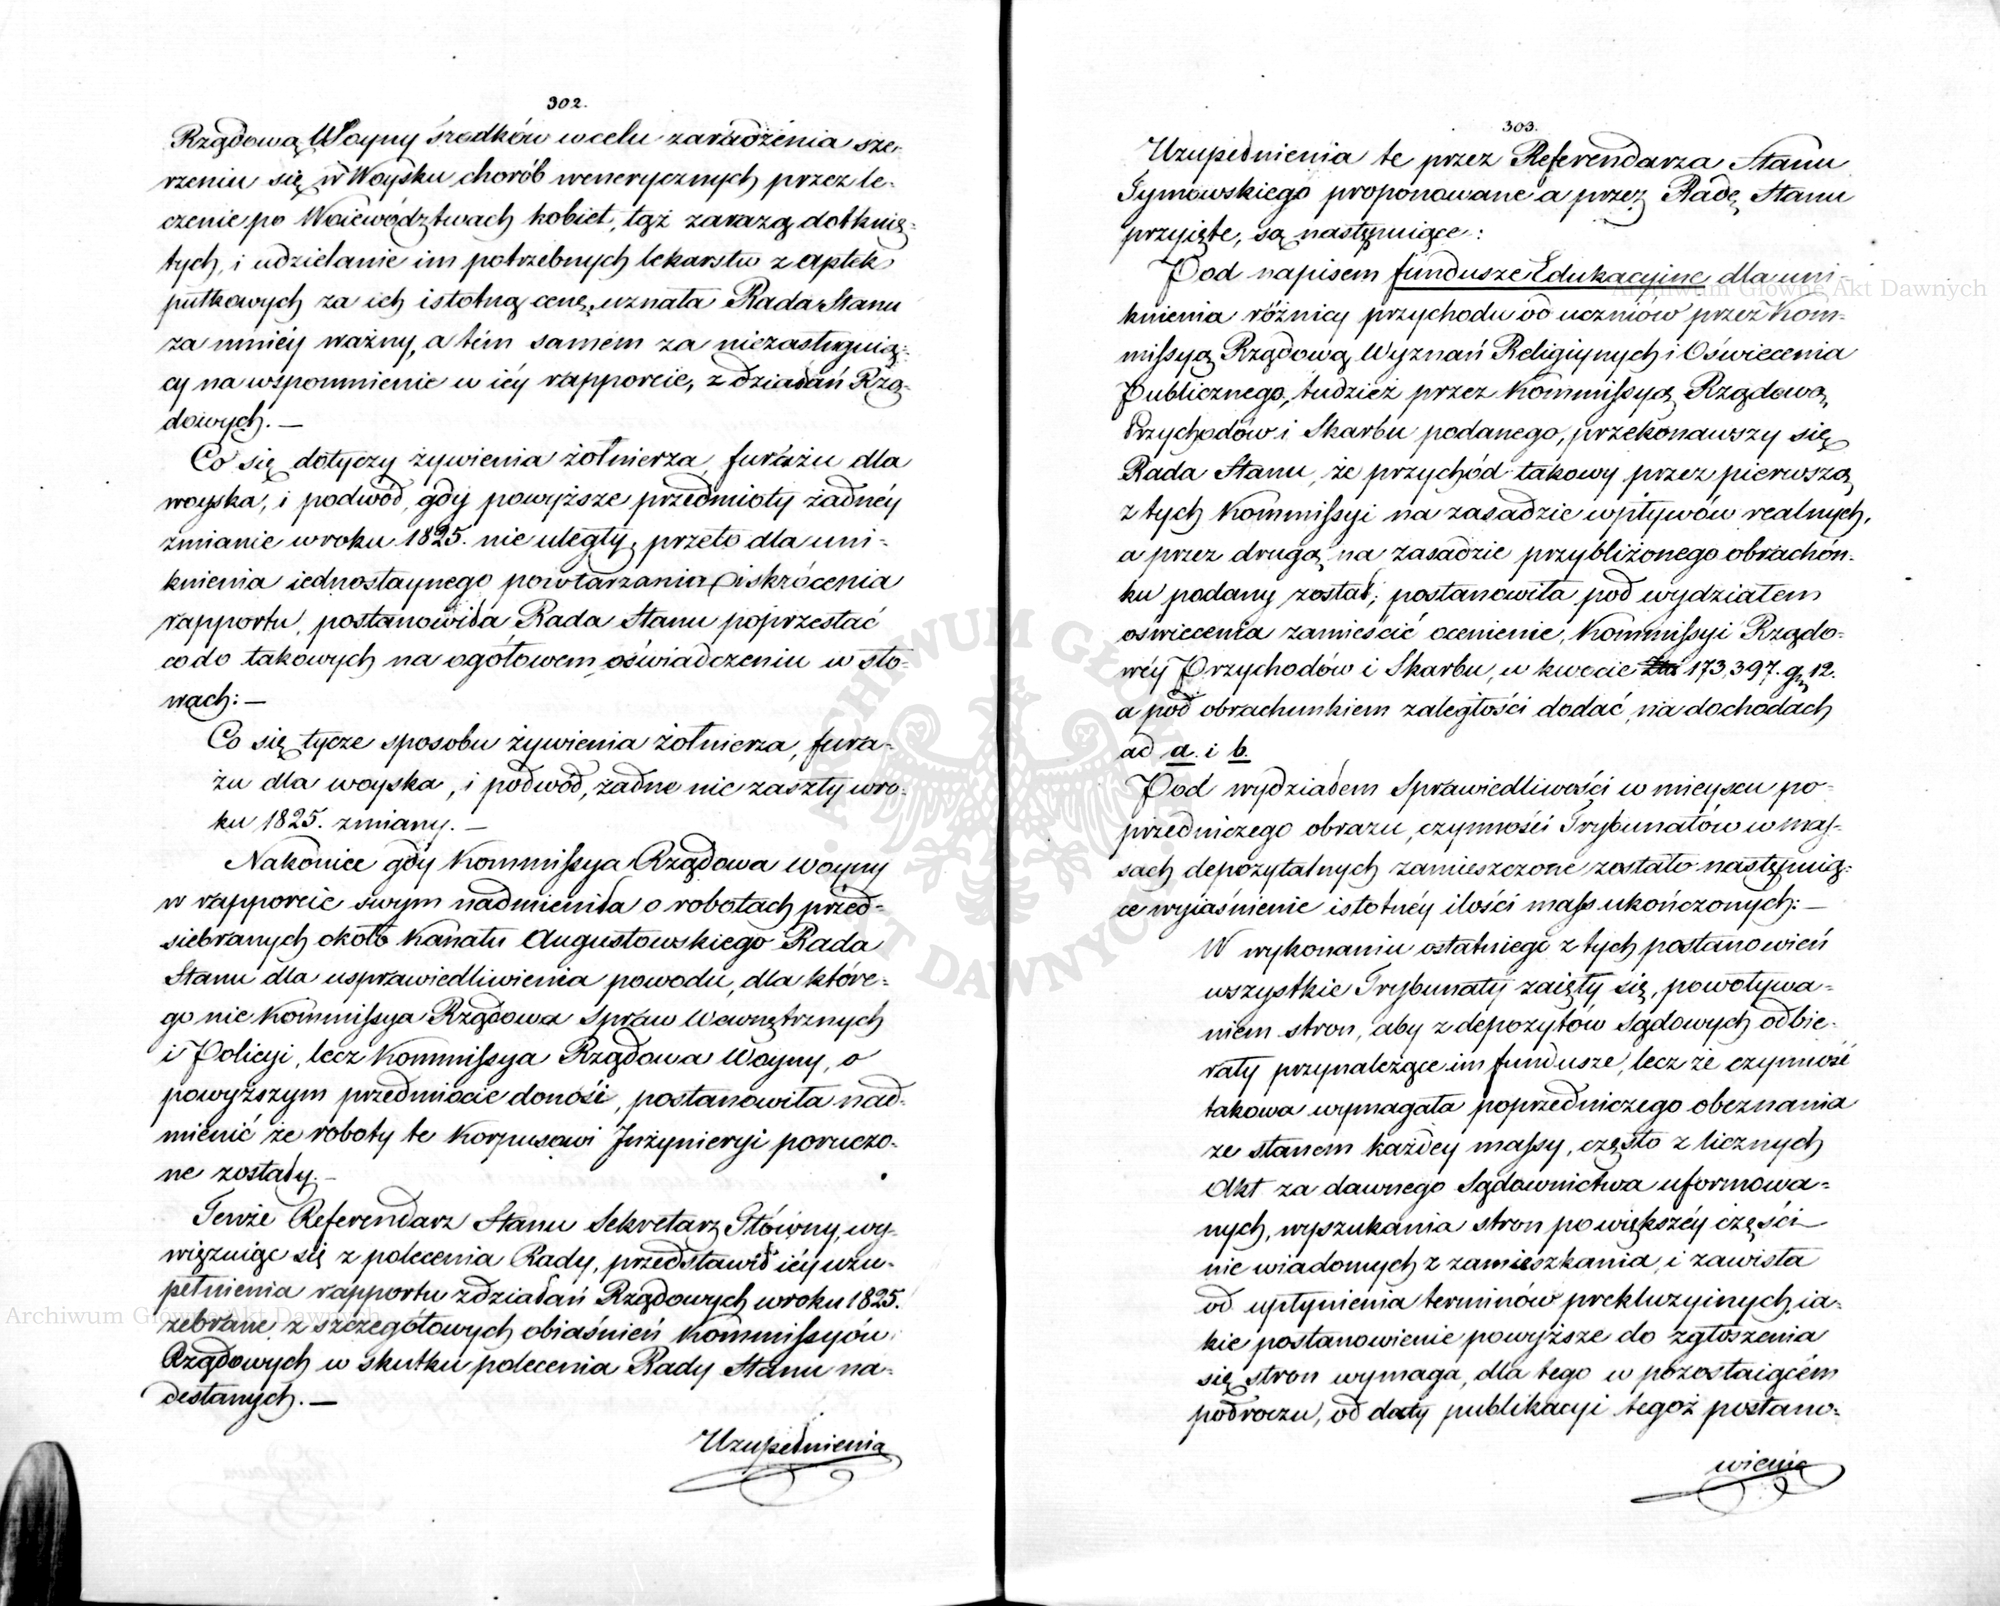 302.
Rządową Woyny środków w celu zaradzenia sze-
rzeniu się w Woysku chorób wenerycznych przez le-
czenie po Woiewództwach kobiet, tąż zarazą dotknię-
tych, i udzielanie im potrzebnych lekarstw z Aptek
pułkowych za ich istotną cenę, uznała Rada Stanu
za mniéy ważny, a tém samém za niezasługuią-
cy na wspomnienie w iéy rapporcie, z działań Rzą-
dowych. —
Co się dotyczy żywienia żołnierza, furażu dla
woyska, i podwód, gdy powyższe przedmioty żadnéy
zmianie w roku 1825. nie uległy, przeto dla uni-
knienia iednostaynego powtarzania i skrócenia
rapportu, postanowiła Rada Stanu poprzestać
co do takowych na ogółowem oświadczeniu w sło-
wach: —
Co się tycze sposobu żywienia żołnierza, fura-
żu dla woyska, i podwód, żadne nie zaszły w ro-
ku 1825. zmiany. —
Nakoniec gdy Kommissya Rządowa Woyny
w rapporcie swym nadmieniła o robotach przed-
siebranych około Kanału Augustowskiego Rada
Stanu dla usprawiedliwienia powodu, dla które-
go nie Kommissya Rządowa Spraw Wewnętrznych
i Policyi, lecz Kommissya Rządowa Woyny, o
powyższym przedmiocie donosi, postanowiła nad-
mienić że roboty te Korpusowi Inżynieryi poruczo-
ne zostały. —
Tenże Referendarz Stanu Sekretarz Główny, wy-
więzuiąc się z polecenia Rady, przedstawił iéy uzu-
pełnienia rapportu z działań Rządowych w roku 1825.
zebrane z szczegółowych obiaśnień Kommissyów
Rządowych w skutku polecenia Rady Stanu na-
desłanych. —
Uzupełnienia
303.
Uzupełnienia te przez Referendarza Stanu
Tymowskiego proponowane a przez Radę Stanu
przyięte, są następuiące:
Pod napisem fundusze Edukacyine dla uni-
knienia różnicy przychodu od uczniów przez Kom-
missyą Rządową Wyznań Religiynych i Oświecenia
Publicznego, tudzież przez Kommissyą Rządową
Przychodów i Skarbu podanego, przekonawszy się
Rada Stanu, że przychód takowy przez pierwszą
z tych Kommissyi na zasadzie wpływów realnych,
a przez drugą na zasadzie przybliżonego obrachon-
ku podany został; postanowiła pod wydziałem
oświecenia zamieścić ocenienie, Kommissyi Rządo-
wéy Przychodów i Skarbu, w kwocie 173,397. gr 12.
a pod obrachunkiem zaległości dodać na dochodach
ad a. i b.
Pod wydziałem Sprawiedliwości w mieyscu po-
przedniczego obrazu, czynności Trybunałów w mas-
sach depozytalnych zamieszczone zostało następuią-
ce wyiaśnienie istotnéy ilości mass ukończonych: —
W wykonaniu ostatniego z tych postanowień
wszystkie Trybunały zaięły się, powoływa-
niem stron, aby z depozytów Sądowych odbie-
rały przynależące im fundusze, lecz że czynność
takowa wymagała poprzedniczego obeznania
ze stanem każdey massy, często z licznych
Akt za dawnego Sądownictwa uformowa-
nych, wyszukania stron po większéy części
nie wiadomych z zamieszkania, i zawisła
od upłynienia terminów prekluzyinych, ia-
kie postanowienie powyższe do zgłoszenia
się stron wymaga, dla tego w pozostaiącém
podroczu, od daty publikacyi tegoż postano-
wienia
Archiwum Główne Akt Dawnych
Archiwum Główne Akt Dawnych
ARCHIWUM GŁÓWNE AKT DAWNYCH